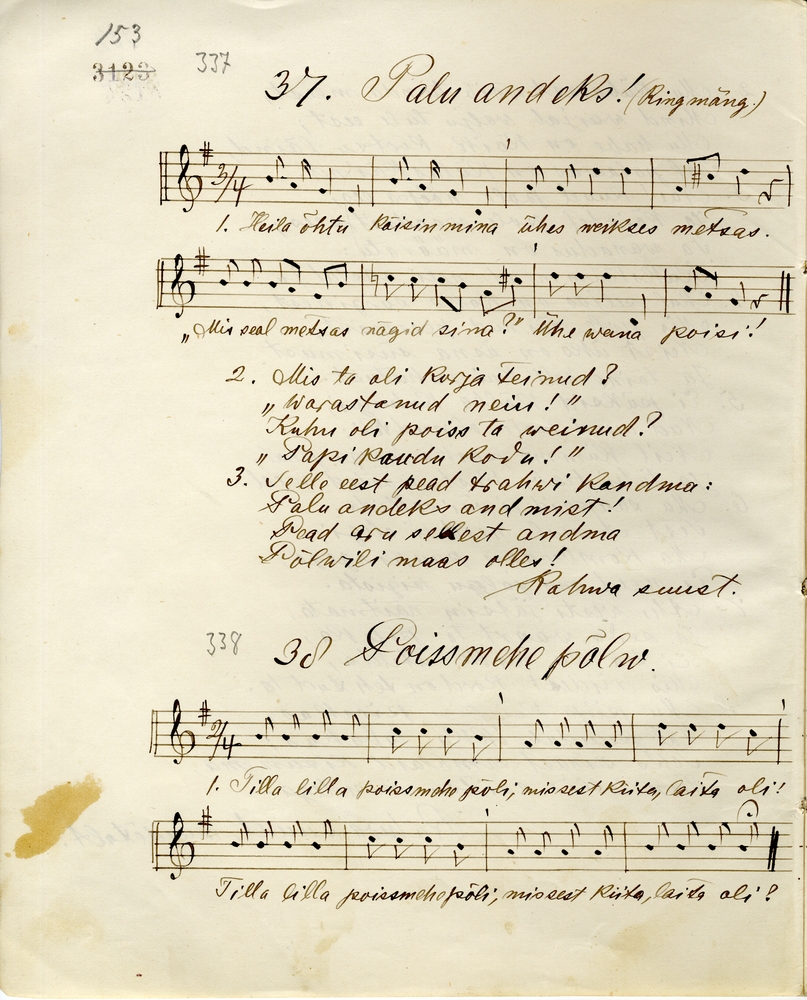 153
3123
337
37. Palu andeks! (Ringmäng.)
3/4
1. Heila õhtu käisin mina ühes weikses metsas.
„Mis seal metsas nägid sina?" Ühe wana poisi!
2. Mis ta oli kurja teinud?
„Warastanud nein!"
Kuhu oli poiss ta weinud?
„Papi kaudu kodu!"
3. Selle eest pead trahwi kandma:
Palu andeks and mist!
Pead aru sellest andma
Põlwili maas olles!
Rahwa suust.
338
38 Poissmehe põlw.
2/4
1. Tilla lilla poissmehe põli, missest kiita, laita oli!
Tilla lilla poissmehe põli, missest kiita, laita oli?